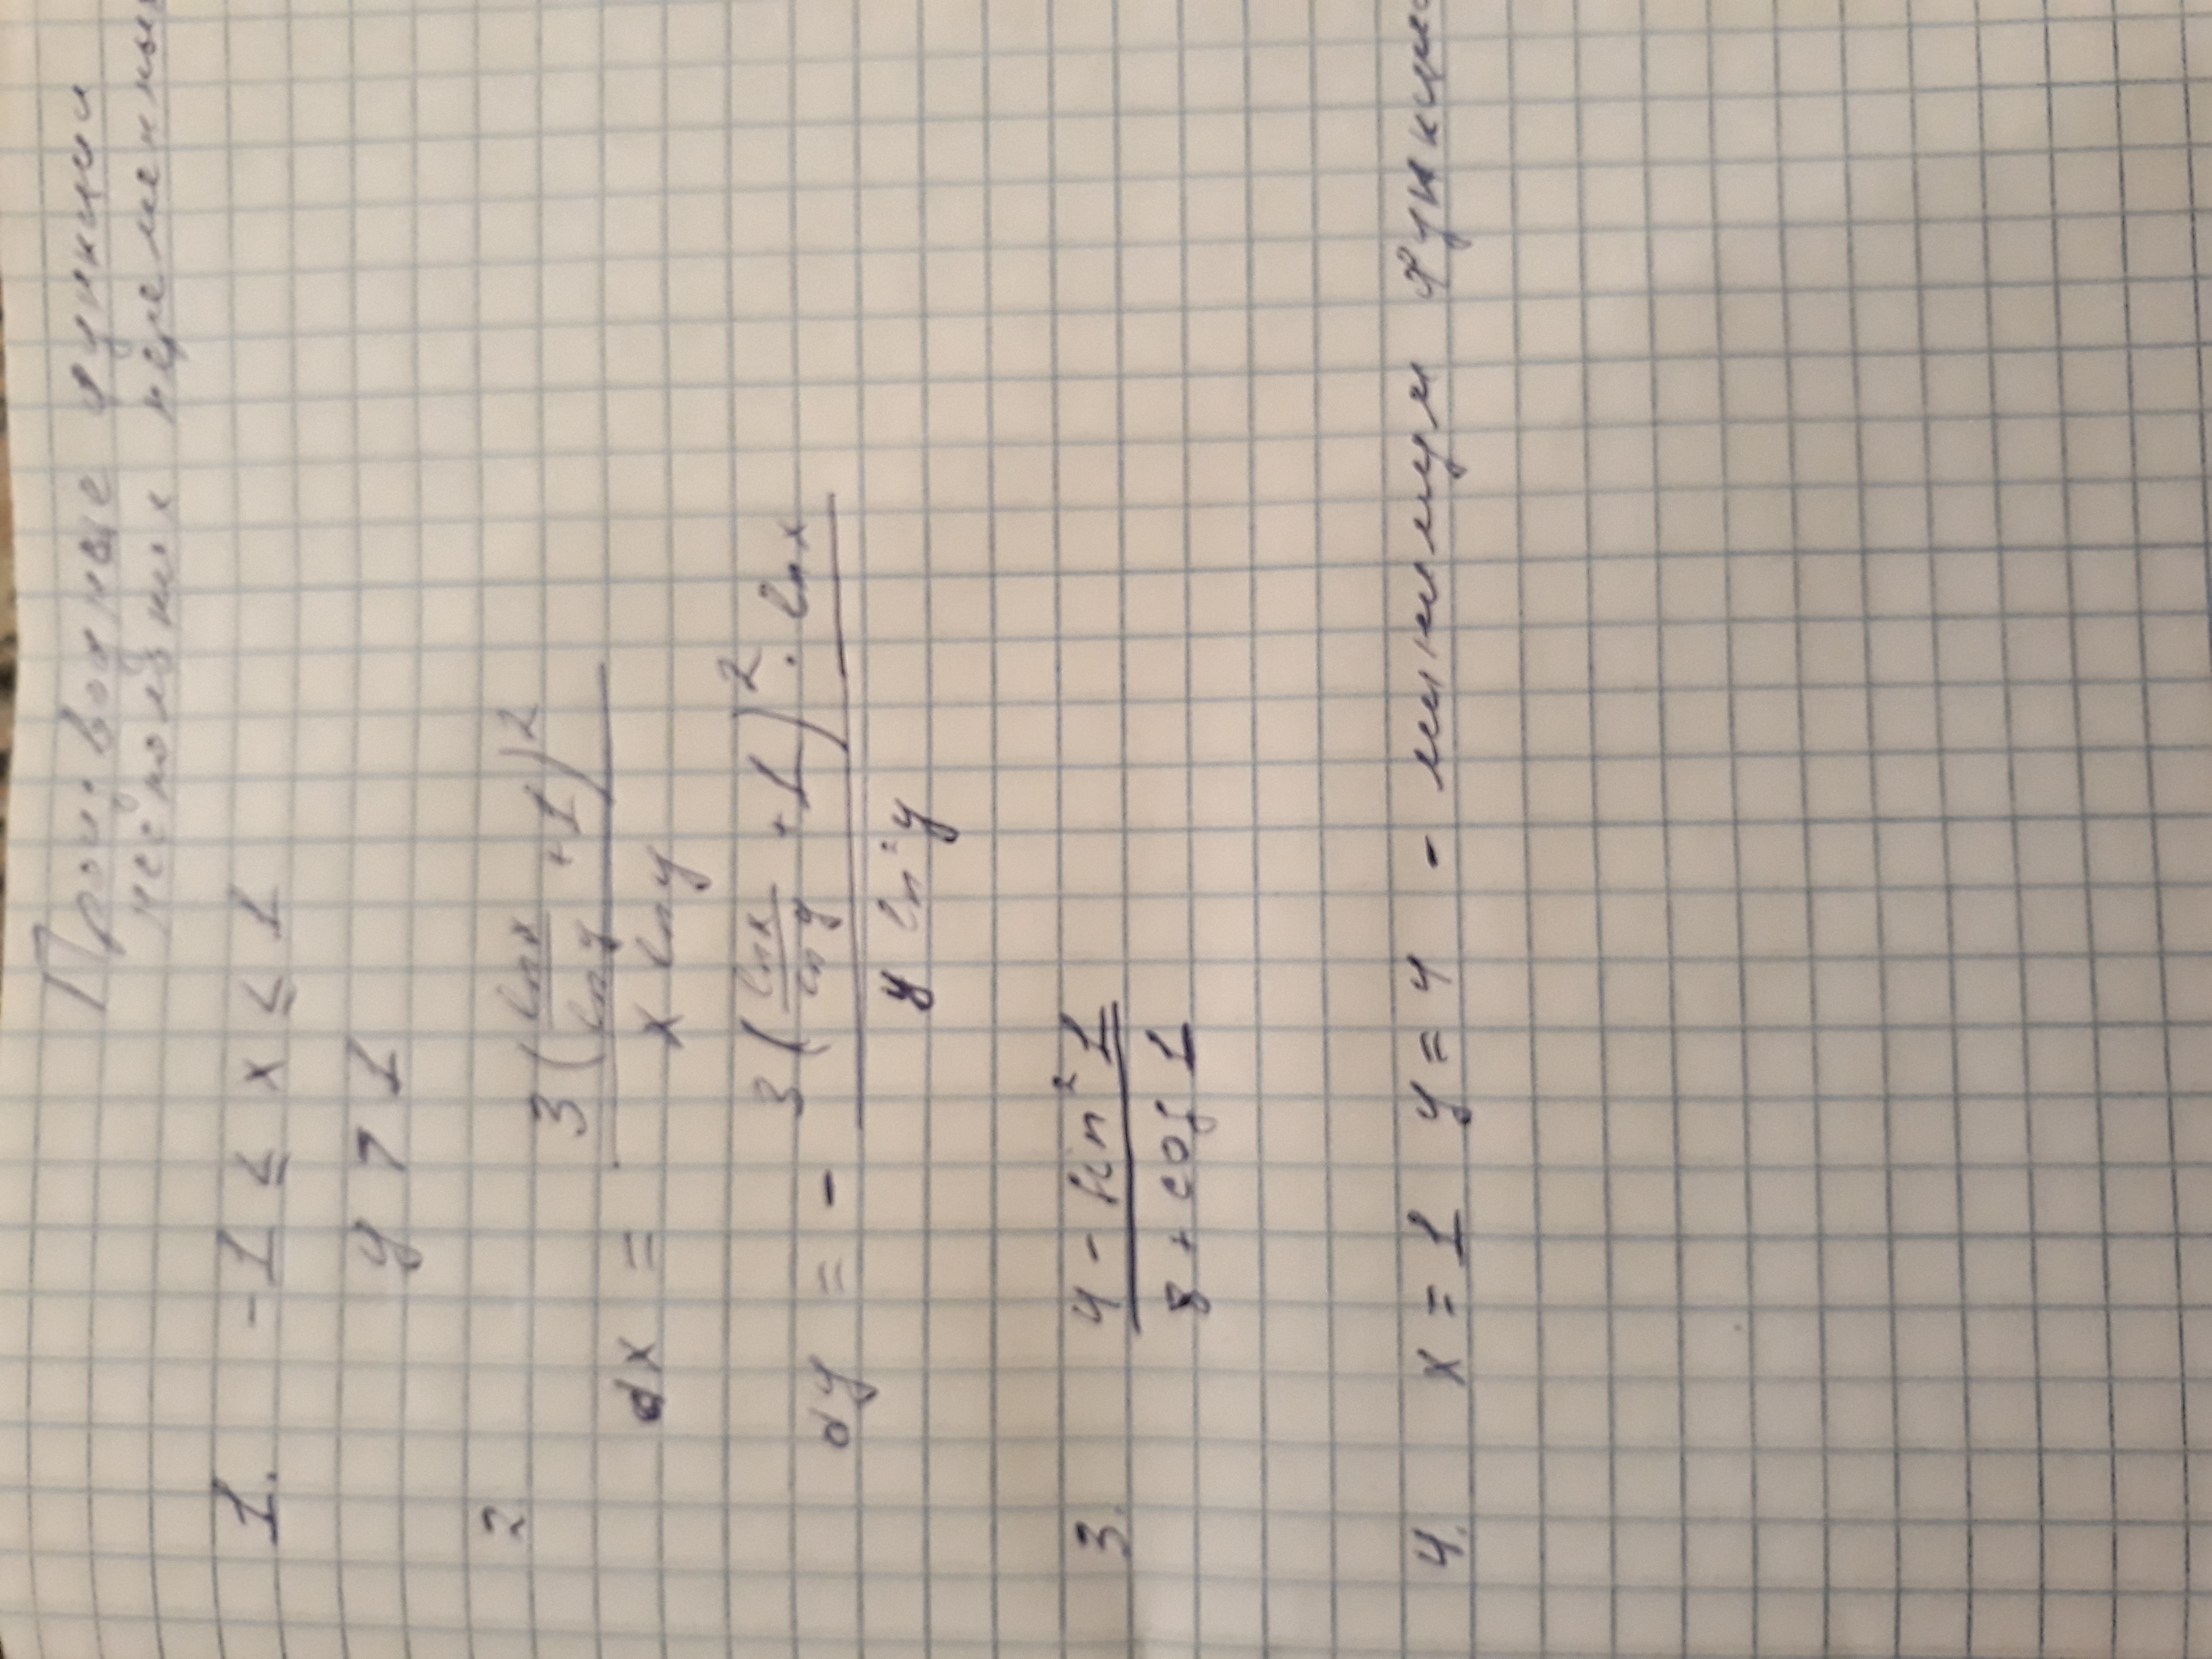 Производные функции
нескольких переменных
1. -1 ≤ x ≤ 1
y > 1
2
dx = 3(lnx/lny +1)² / x lny
dy = - 3(lnx/lny +1)² · lnx / y ln²y
3. 4 - sin² 1 / 8 + cos 1
4. x = 1 y = 4 - минимум